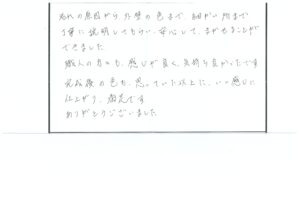 汚れの原因から外壁の色まで、細かい所まで
丁寧に説明してもらい、安心して、まかせることが
できました。
職人の方々も、感じが良く、気持ち良かったです
完成後の色も、思っていた以上に、いい感じに
仕上がり、満足です
ありがとうございました。